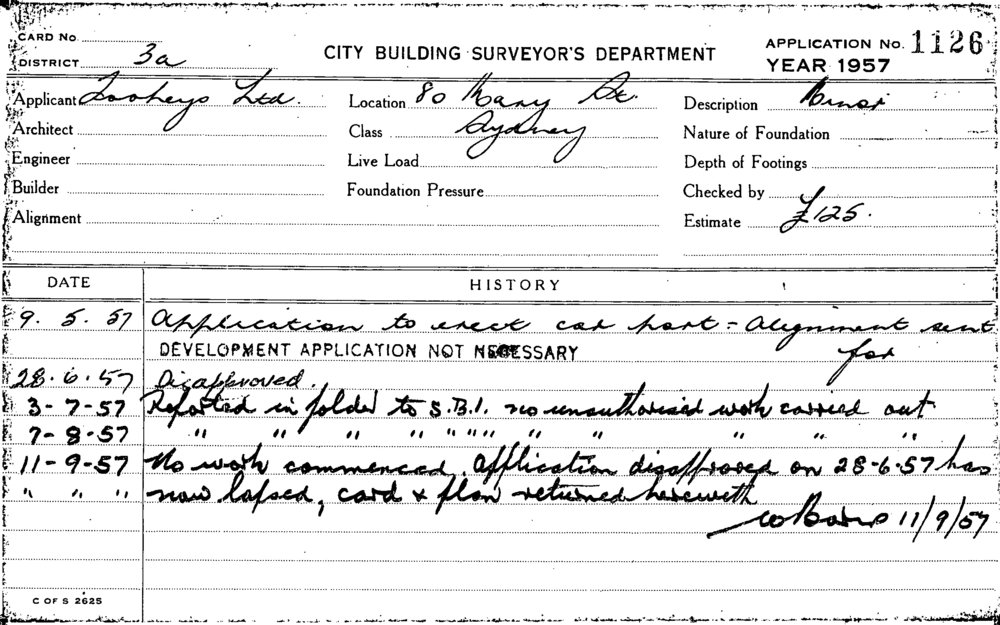 CARD No.
DISTRICT 3a
CITY BUILDING SURVEYOR'S DEPARTMENT
APPLICATION No. 1126
YEAR 1957
Applicant Tooheys Ltd.
Location 80 Mary St.
Description Minor
Architect
Class Sydney
Nature of Foundation
Engineer
Live Load
Depth of Footings
Builder
Foundation Pressure
Checked by
Alignment
Estimate £125.
DATE
HISTORY
9. 5. 57 Application to erect car port - Alignment sent
for
DEVELOPMENT APPLICATION NOT NECESSARY
28.6.57 Disapproved.
3-7-57 Reported in folder to S.B.I. no unauthorised work carried out
7-8-57 " " " " " " " " " " " "
11-9-57 No work commenced. Application disapproved on 28-6-57 has
" " " now lapsed, card & plan returned herewith
11/9/57
C OF S 2625